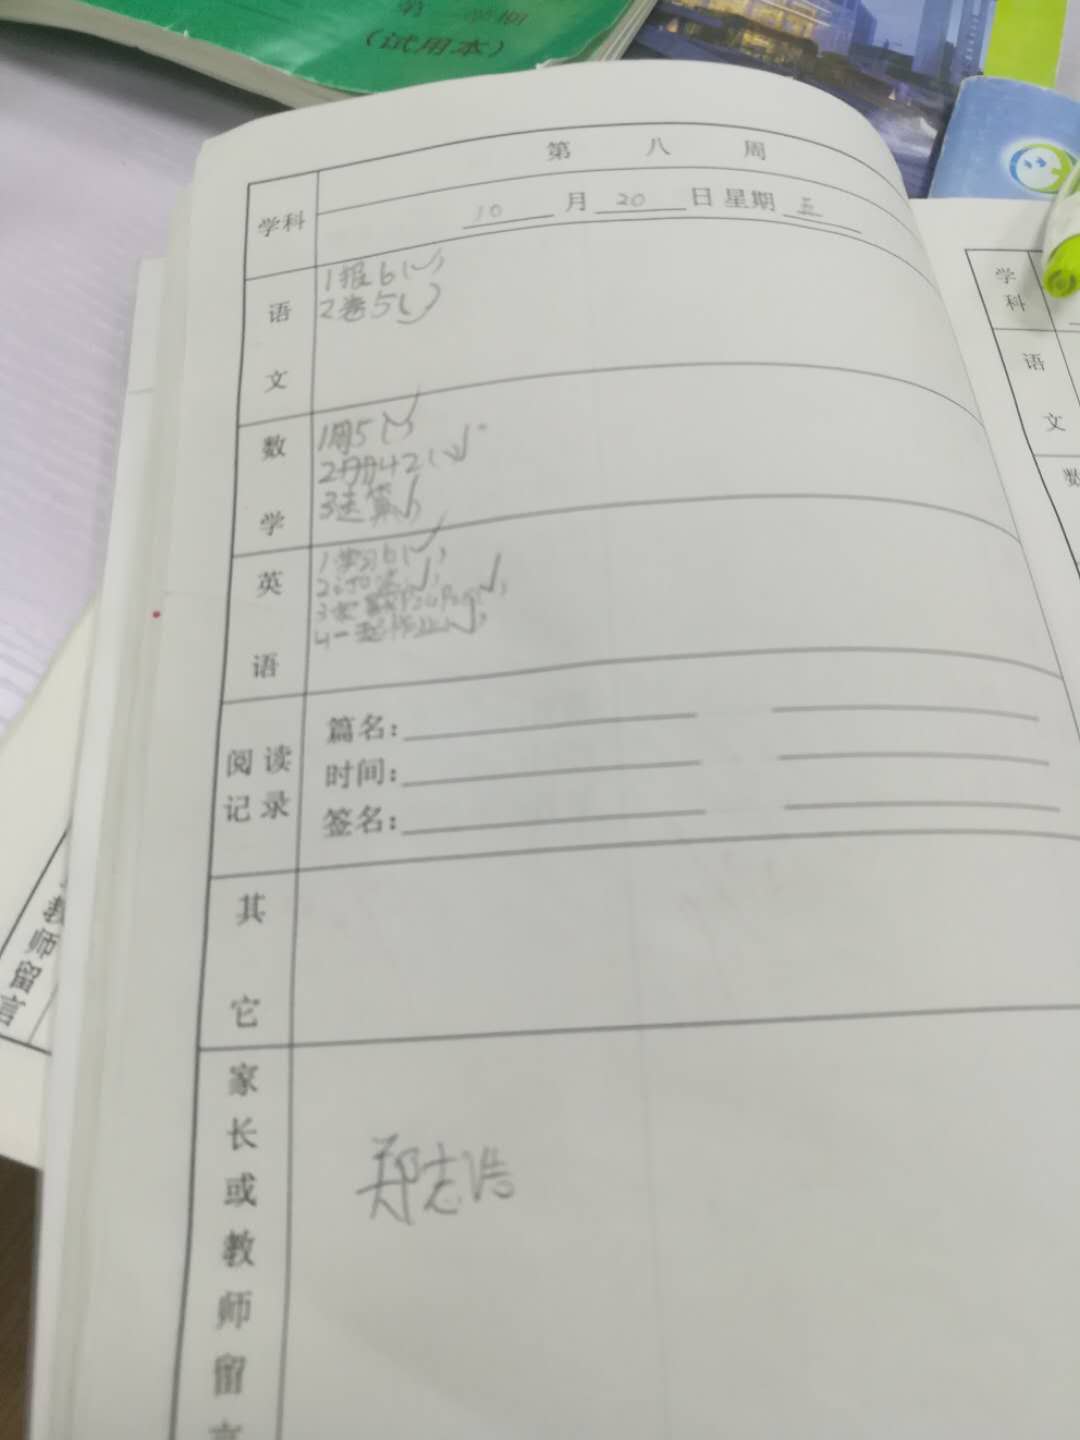 （试用本）
第 八 周
学科
10 月 20 日 星期 五
语文
1报6(✓)
2卷5( )
数学
1周5(✓)
2册42(✓)
3速算✓
英语
1学习6(✓)
阅读记录
篇名：
时间：
签名：
其它
家长或教师留言
郑志浩
学科
语文
数
教师留言